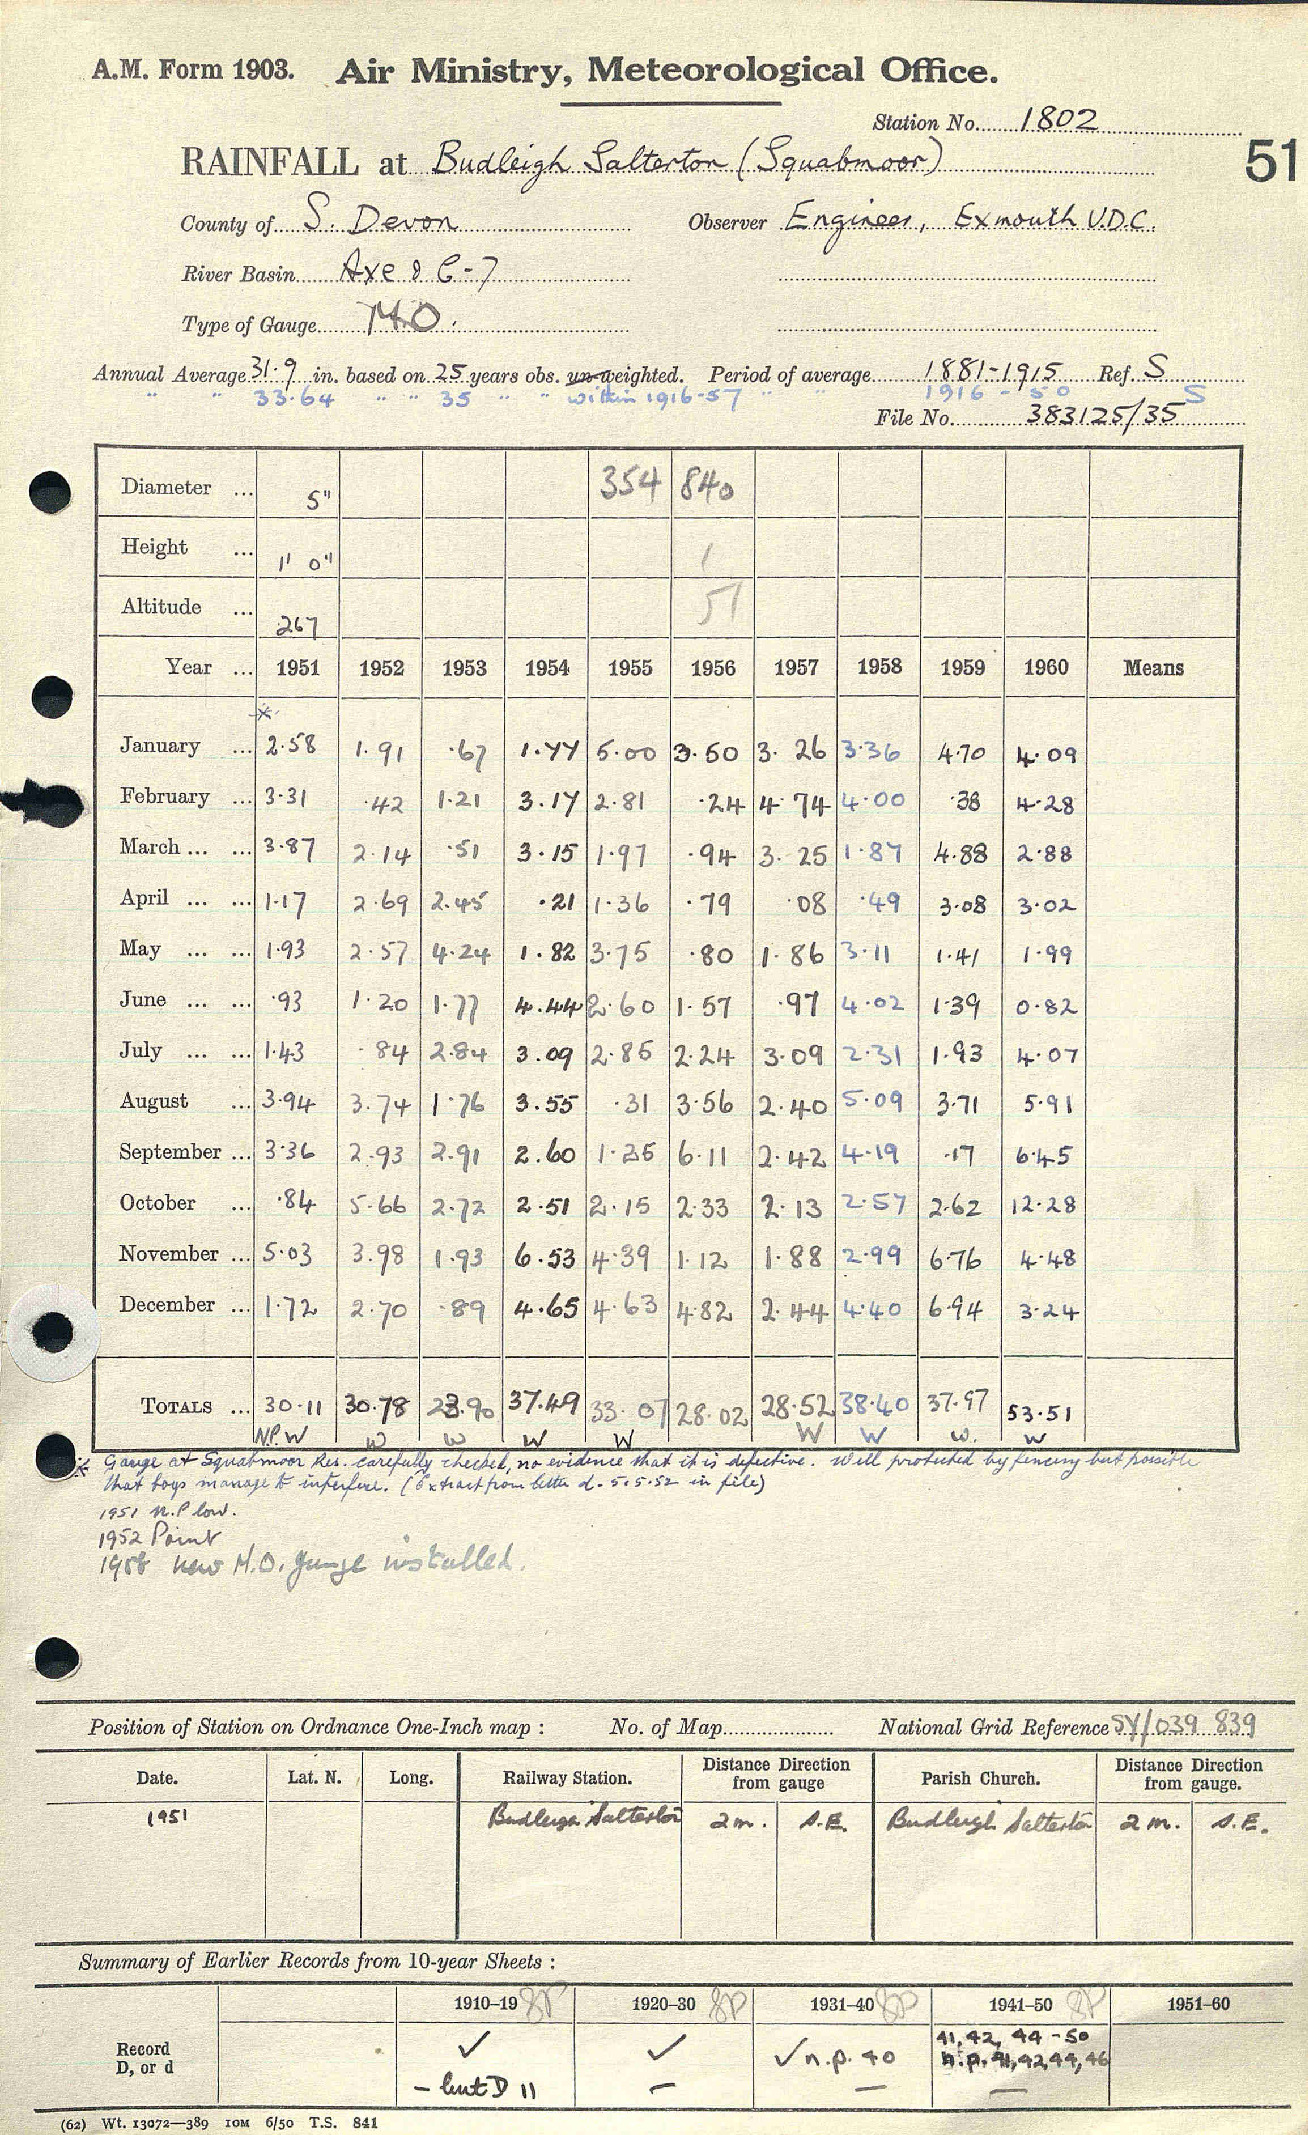 A.M. Form 1903. Air Ministry, Meteorological Office.
Station No. 1802
RAINFALL at Budleigh Salterton (Squabmoor)
51
County of S. Devon Observer Engineer, Exmouth U.D.C.
River Basin Axe & C-7
Type of Gauge M.O.
Annual Average 31·9 in. based on 25 years obs. un-weighted. Period of average 1881-1915 Ref. S
" " 33·64 " " 35 " " within 1916-57 " " 1916-50 S
File No. 383125/35
Diameter ... 5" 354 840
Height ... 1' 0" 1
Altitude ... 267 51
Year ... 1951 1952 1953 1954 1955 1956 1957 1958 1959 1960 Means
*
January ... 2·58 1.91 ·67 1.77 5.00 3.50 3.26 3·36 4·70 4·09
February ... 3·31 ·42 1·21 3.17 2·81 ·24 4·74 4·00 ·38 4·28
March ... ... 3·87 2·14 ·51 3·15 1·97 ·94 3.25 1·87 4.88 2·88
April ... ... 1·17 2·69 2·45 ·21 1·36 ·79 ·08 ·49 3·08 3·02
May ... ... 1·93 2·57 4·24 1.82 3·75 ·80 1·86 3·11 1·41 1·99
June ... ... ·93 1·20 1·77 4.44 2·60 1·57 ·97 4·02 1·39 0·82
July ... ... 1·43 ·84 2·84 3.09 2·85 2·24 3·09 2·31 1·93 4·07
August ... 3·94 3.74 1·76 3.55 ·31 3·56 2·40 5·09 3·71 5·91
September ... 3·36 2.93 2·91 2.60 1·25 6·11 2·42 4·19 ·17 6·45
October ... ·84 5·66 2·72 2·51 2·15 2·33 2·13 2·57 2·62 12·28
November ... 5·03 3.98 1·93 6.53 4·39 1·12 1·88 2·99 6·76 4·48
December ... 1·72 2·70 ·89 4·65 4·63 4·82 2·44 4·40 6·94 3·24
TOTALS ... 30·11 30·78 23.90 37.49 33·07 28·02 28·52 38·40 37·97 53·51
N.P. W W W W W W W W. W
* Gauge at Squabmoor Res. carefully checked, no evidence that it is defective. Well protected by fencing but possible
that boys manage to interfere. (Extract from letter d. 5.5.52 in file)
1951 N.P low.
1952 Point
1958 new M.O. gauge installed.
Position of Station on Ordnance One-Inch map : No. of Map National Grid Reference SY/039 839
Date. Lat. N. Long. Railway Station. Distance Direction from gauge Parish Church. Distance Direction from gauge.
1951 Budleigh Salterton 2 m. S.E. Budleigh Salterton 2 m. S.E.
Summary of Earlier Records from 10-year Sheets :
1910–19 8P 1920–30 8P 1931–40 8P 1941–50 8P 1951–60
Record
D, or d
✓ ✓ ✓ n.p. 40 41, 42, 44-50
n.p. 41, 42, 44, 46
– but D 11 – – –
(62) Wt. 13072—389 10M 6/50 T.S. 841